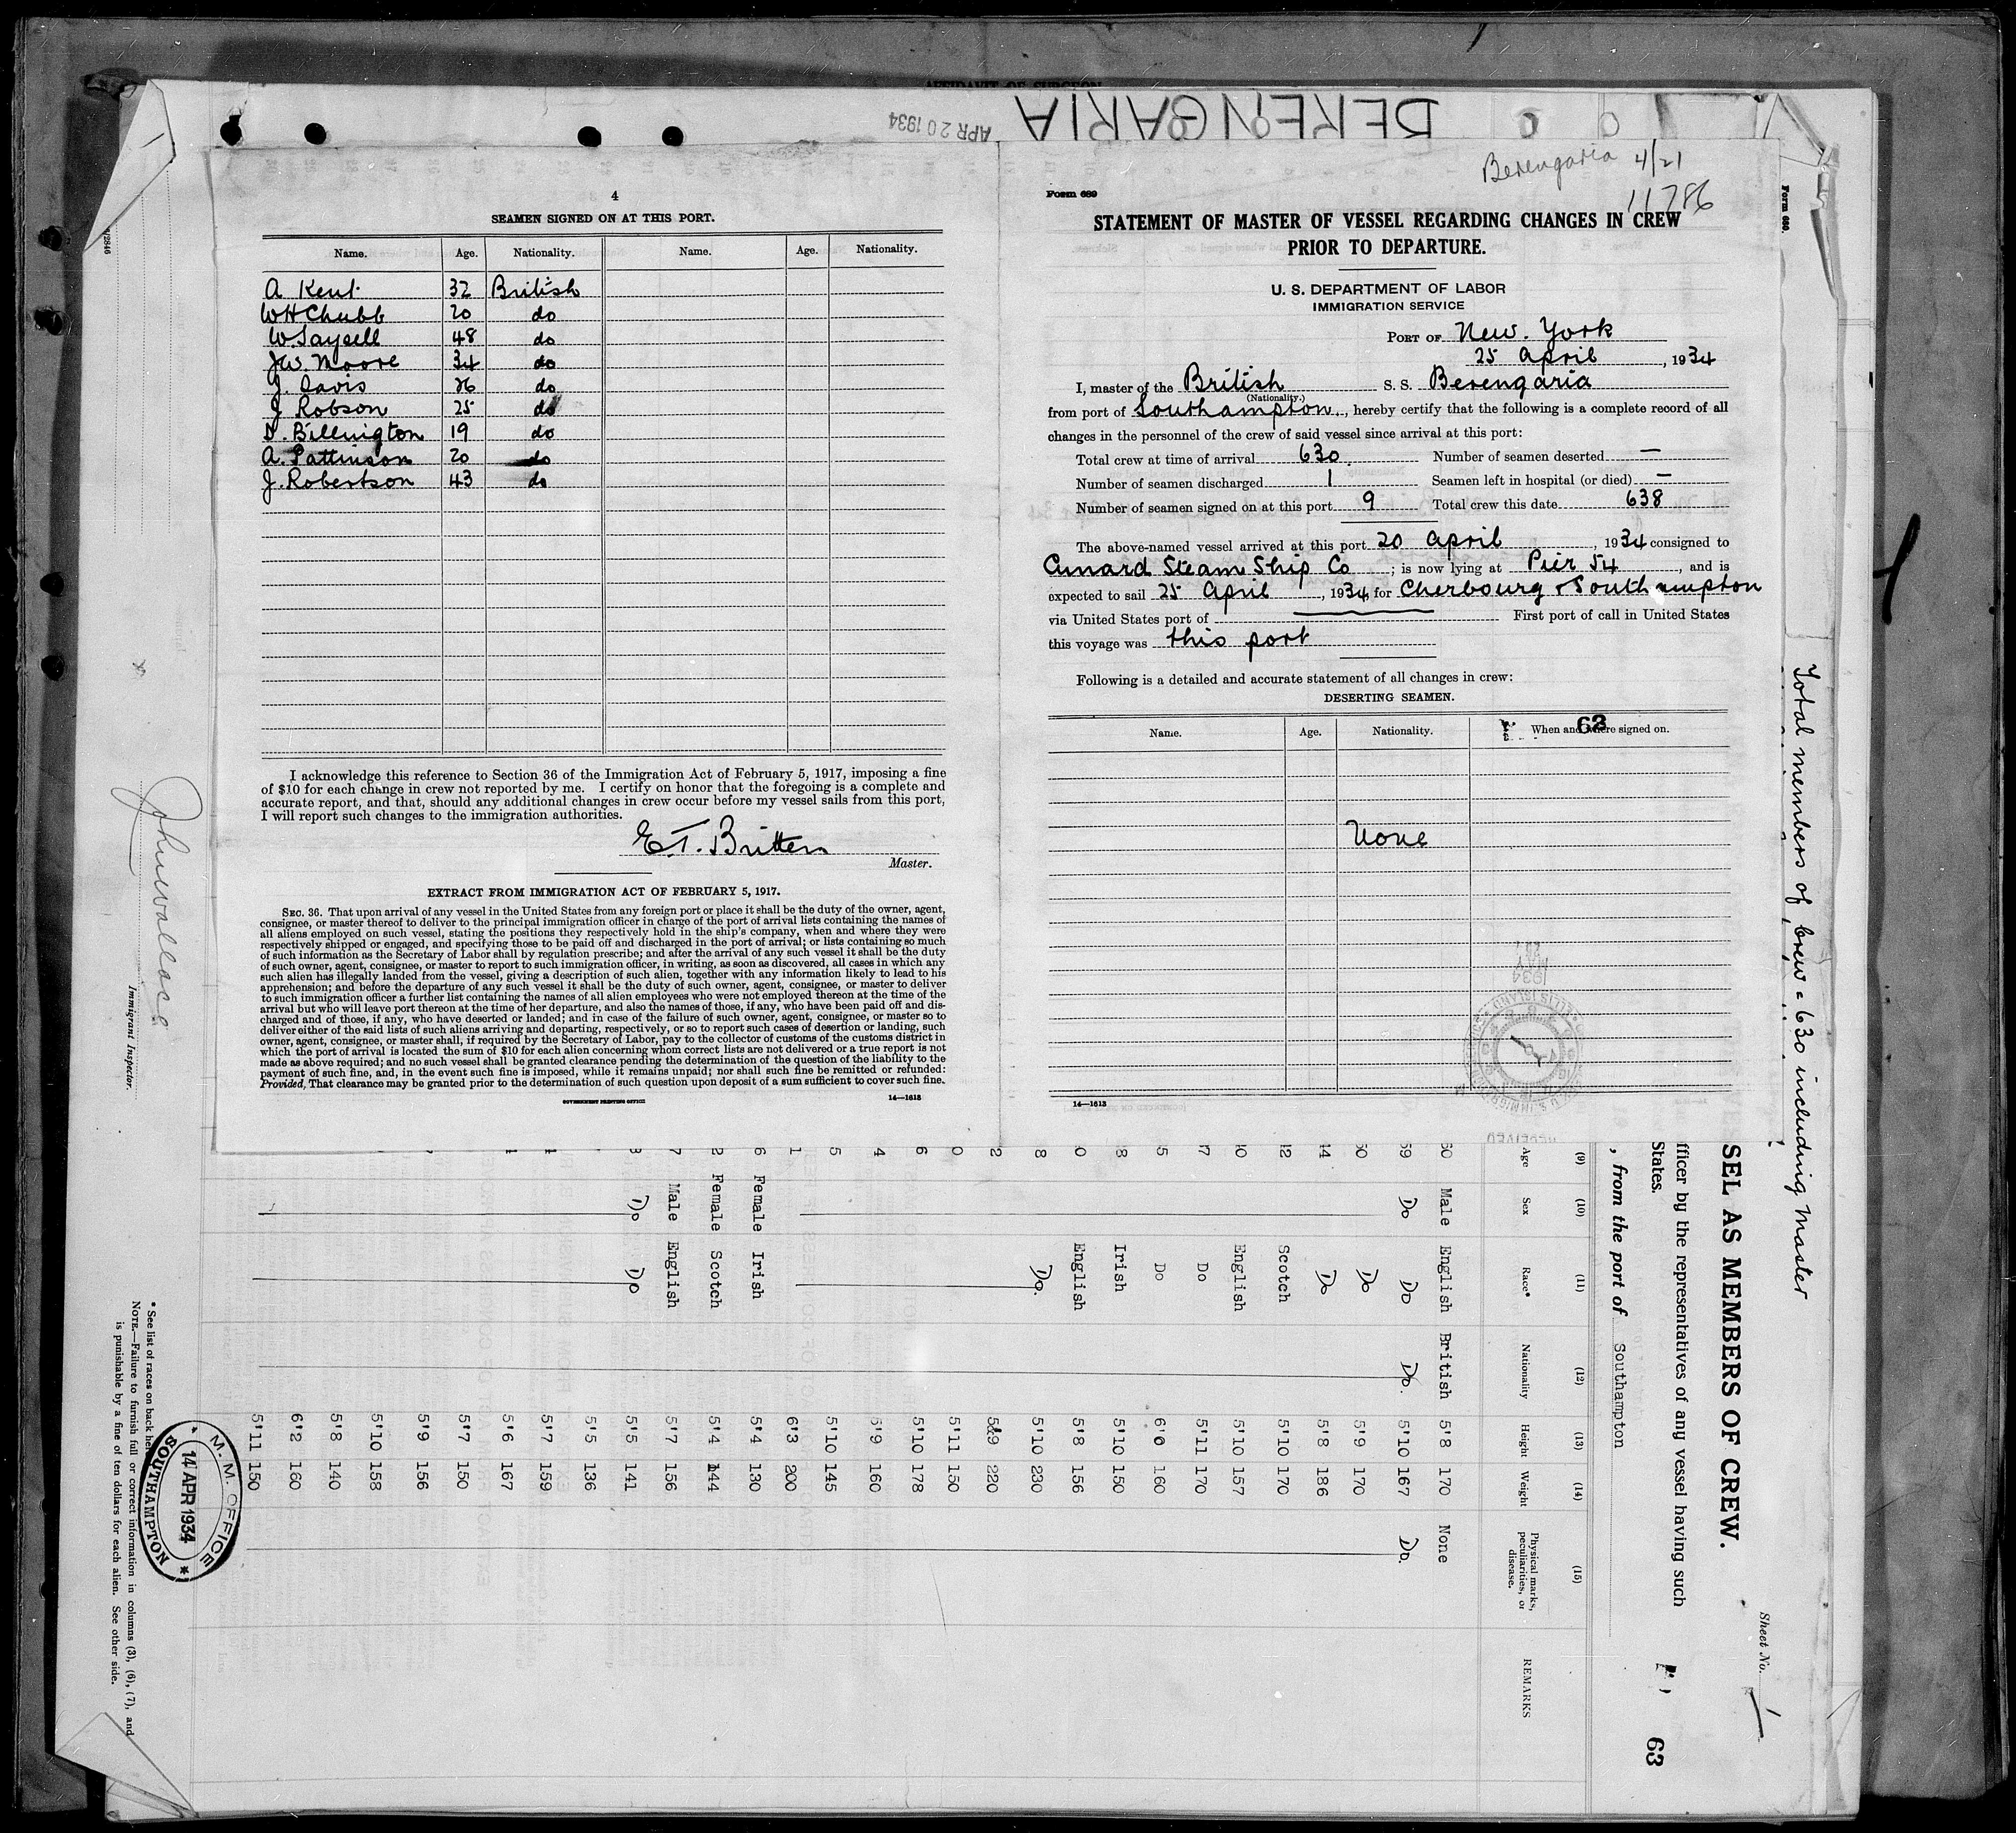 BERENGARIA
APR 20 1934
4
SEAMEN SIGNED ON AT THIS PORT.
Name. Age. Nationality. Name. Age. Nationality.
A Kent 32 British
WH Chubb 20 do
W. Saysell 48 do
J.W. Moore 34 do
J. Davis 26 do
J Robson 25 do
D. Billington 19 do
A. Pattinson 20 do
J. Robertson 43 do
I acknowledge this reference to Section 36 of the Immigration Act of February 5, 1917, imposing a fine
of $10 for each change in crew not reported by me. I certify on honor that the foregoing is a complete and
accurate report, and that, should any additional changes in crew occur before my vessel sails from this port,
I will report such changes to the immigration authorities.
E.T. Britten
Master.
EXTRACT FROM IMMIGRATION ACT OF FEBRUARY 5, 1917.
SEC. 36. That upon arrival of any vessel in the United States from any foreign port or place it shall be the duty of the owner, agent,
consignee, or master thereof to deliver to the principal immigration officer in charge of the port of arrival lists containing the names of
all aliens employed on such vessel, stating the positions they respectively hold in the ship's company, when and where they were
respectively shipped or engaged, and specifying those to be paid off and discharged in the port of arrival; or lists containing so much
of such information as the Secretary of Labor shall by regulation prescribe; and after the arrival of any such vessel it shall be the duty
of such owner, agent, consignee, or master to report to such immigration officer, in writing, as soon as discovered, all cases in which any
such alien has illegally landed from the vessel, giving a description of such alien, together with any information likely to lead to his
apprehension; and before the departure of any such vessel it shall be the duty of such owner, agent, consignee, or master to deliver
to such immigration officer a further list containing the names of all alien employees who were not employed thereon at the time of the
arrival but who will leave port thereon at the time of her departure, and also the names of those, if any, who have been paid off and dis-
charged and of those, if any, who have deserted or landed; and in case of the failure of such owner, agent, consignee, or master so to
deliver either of the said lists of such aliens arriving and departing, respectively, or so to report such cases of desertion or landing, such
owner, agent, consignee, or master shall, if required by the Secretary of Labor, pay to the collector of customs of the customs district in
which the port of arrival is located the sum of $10 for each alien concerning whom correct lists are not delivered or a true report is not
made as above required; and no such vessel shall be granted clearance pending the determination of the question of the liability to the
payment of such fine, and, in the event such fine is imposed, while it remains unpaid; nor shall such fine be remitted or refunded:
Provided, That clearance may be granted prior to the determination of such question upon deposit of a sum sufficient to cover such fine.
GOVERNMENT PRINTING OFFICE 14—1613
Berengaria 4/21
11786
Form 689
STATEMENT OF MASTER OF VESSEL REGARDING CHANGES IN CREW
PRIOR TO DEPARTURE.
U. S. DEPARTMENT OF LABOR
IMMIGRATION SERVICE
PORT OF New. York
25 April, 1934
I, master of the British S. S. Berengaria
(Nationality.)
from port of Southampton, hereby certify that the following is a complete record of all
changes in the personnel of the crew of said vessel since arrival at this port:
Total crew at time of arrival 630. Number of seamen deserted —
Number of seamen discharged 1 Seamen left in hospital (or died) —
Number of seamen signed on at this port 9 Total crew this date 638
The above-named vessel arrived at this port 20 April, 1934 consigned to
Cunard Steam Ship Co; is now lying at Pier 54, and is
expected to sail 25 April, 1934, for Cherbourg & Southampton
via United States port of First port of call in United States
this voyage was this port
Following is a detailed and accurate statement of all changes in crew:
DESERTING SEAMEN.
Name. Age. Nationality. When and where signed on.
63
None
14—1613
Form 680.
Total members of crew = 630 including Master
SEL AS MEMBERS OF CREW.
Sheet No. 1
fficer by the representatives of any vessel having such
States.
, from the port of Southampton
63
(9) (10) (11) (12) (13) (14) (15)
Age Sex Race* Nationality Height Weight Physical marks, peculiarities, or disease. REMARKS
60 Male English British 5'8 170 None
59 Do Do Do. 5'10 167 Do.
50 Do 5'9 170
44 Do 5'8 186
12 Scotch 5'10 170
10 English 5'10 157
17 Do 5'11 170
5 Do 6'0 160
38 Irish 5'10 150
0 English 5'8 156
8 Do. 5'10 230
2 5'9 220
0 5'11 150
6 5'10 178
4 5'9 160
5 5'10 145
1 6'3 200
6 Female Irish 5'4 130
2 Female Scotch 5'4 144
7 Male English 5'7 156
3 Do Do 5'5 141
5'5 136
5'7 159
5'6 167
5'7 150
5'9 156
5'10 158
5'8 140
6'2 160
5'11 150
John Wallace
Immigrant Inspector.
* See list of races on back her
NOTE.—Failure to furnish full or correct information in columns (3), (6), (7), and
is punishable by a fine of ten dollars for each alien. See other side.
M. M. OFFICE
14 APR 1934
SOUTHAMPTON